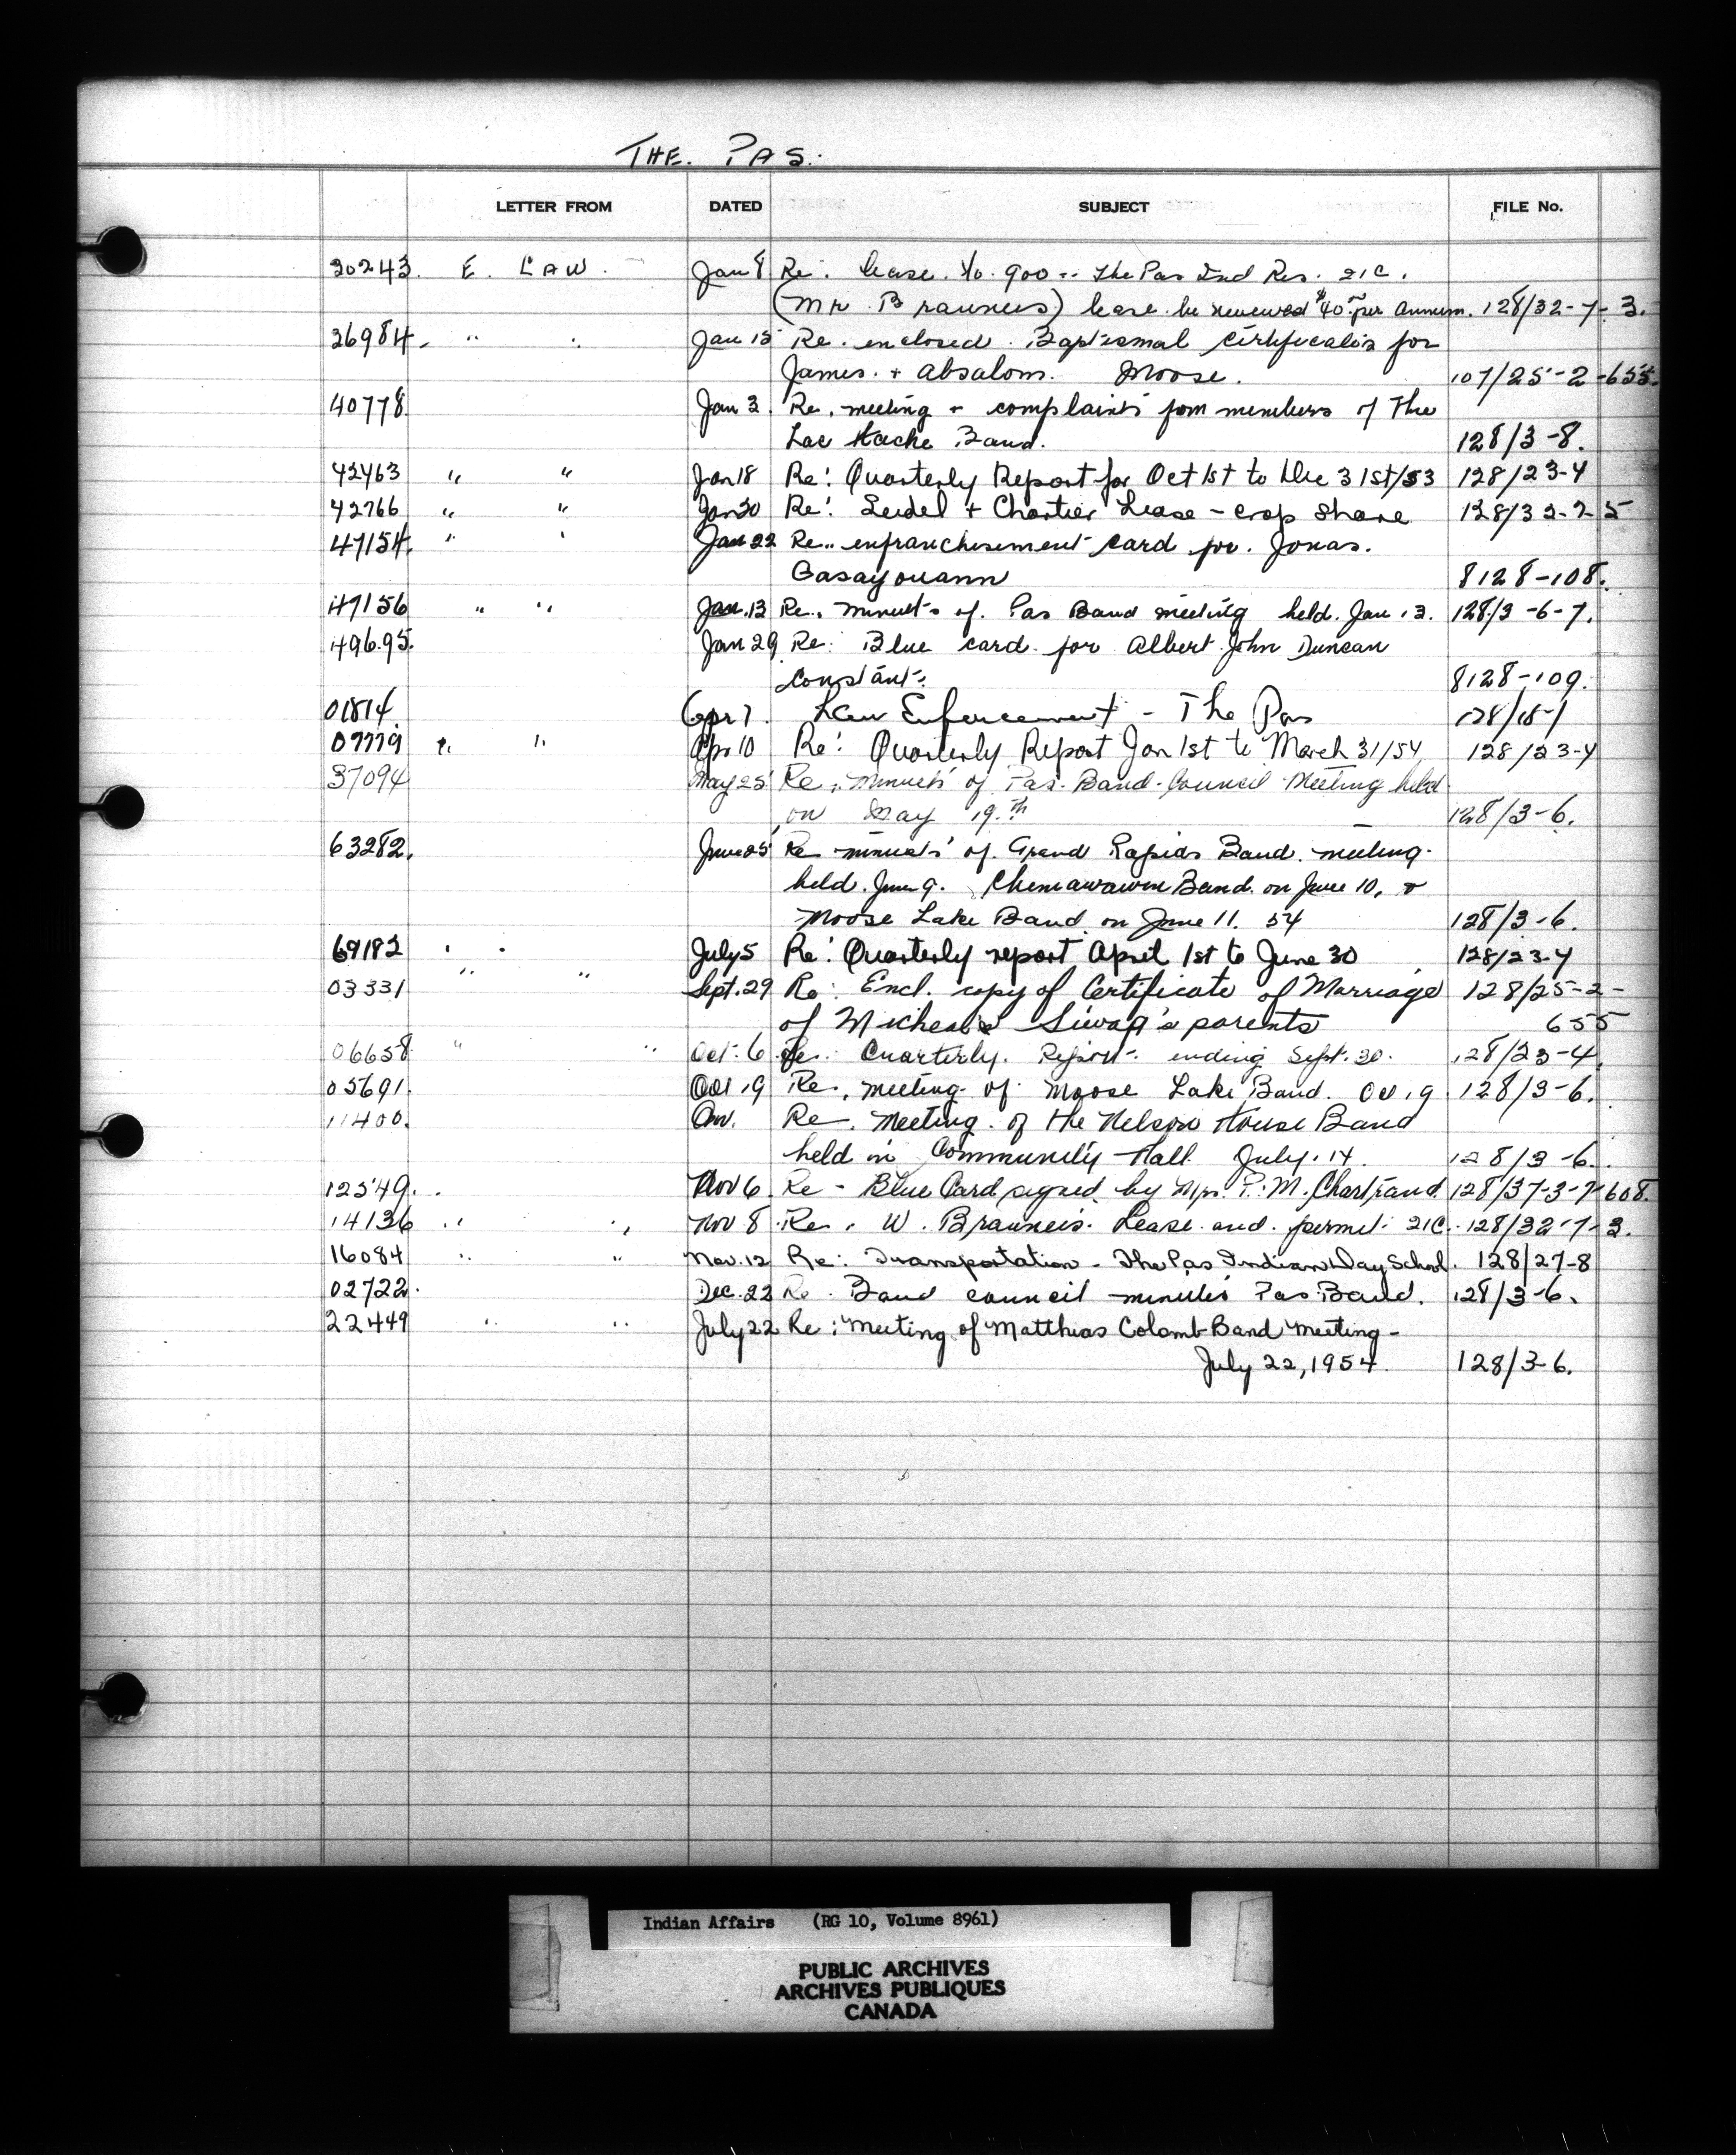 THE. PAS.
LETTER FROM DATED SUBJECT FILE No.
30243. E. LAW. Jan 8 Re: lease. No. 900 -- The Pas Ind Res. 21C.
(Mr Brauneis) lease be renewed $40 per annum. 128/32-7-3.
36984. " " Jan 15 Re. enclosed Baptismal certificates for
James. + Absalom. Moose. 107/25-2-655.
40778. Jan 3 Re. meeting - complaints from members of The
Lac Hache Band. 128/3-8.
42463 " " Jan 18 Re: Quarterly Report for Oct 1st to Dec 31st/53 128/23-4
42766 " " Jan 20 Re: Seidel + Chartier Lease - crop share 128/32-7-5
47154. " " Jan 22 Re.. enfranchisement card for. Jonas.
Gasayouann 8128-108.
47156 " " Jan. 13 Re. minuts of. Pas Band meeting held. Jan 13. 128/3-6-7.
49695. Jan 29 Re: Blue card for Albert John Duncan
Constant. 8128-109.
01814. Apr 7. Law Enforcement - The Pas 128/18-1
07779 " " Apr 10 Re: Quarterly Report Jan 1st to March 31/54 128/23-4
37094 May 25 Re. minuets of Pas. Band. Council Meeting held
on May 19.th 128/3-6.
63282. June 25 Re minuets of. Grand Rapids Band. meeting.
held. June 9. Chemawawin Band. on June 10. &
Moose Lake Band. on June 11. 54 128/3-6.
69182 " " July 5 Re: Quarterly report April 1st to June 30 128/23-4
03331 " " Sept. 29 Re: Encl. copy of Certificate of Marriage 128/25-2-
of Micheal Siwag's parents 655
06658 " " Oct. 6 Re: Quarterly. Report. ending Sept. 30. 128/23-4.
05691. Oct 19 Re. meeting. of Moose Lake Band. Oct 19 128/3-6.
11400. Re. Meeting. of the Nelson House Band
held in Community Hall July. 14. 128/3-6.
12549. Nov 6. Re - Blue Card signed by Mrs. P. M. Chartrand. 128/37-3-7-608.
14136 " " Nov 8. Re. W. Brauneis. Lease and. permit. 21C. 128/32-7-3.
16084 " " Nov. 12 Re: Transportation - The Pas Indian Day School. 128/27-8
02722. Dec. 22 Re. Band council minutes Pas Band. 128/3-6.
22449 " " July 22 Re: Meeting of Matthias Colomb Band Meeting -
July 22, 1954. 128/3-6.
Indian Affairs (RG 10, Volume 8961)
PUBLIC ARCHIVES
ARCHIVES PUBLIQUES
CANADA